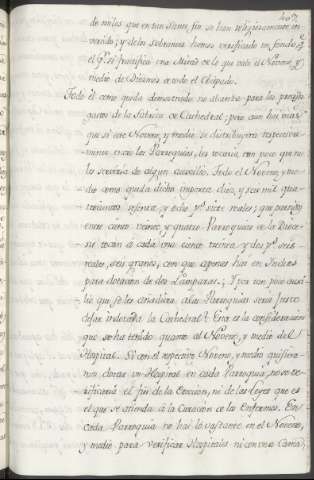 de miles que en tan Santo fin se han religiosamente in-
vertido; y de lo sobrante hemos verificado un fondo, q.e
el q.e se fructifica una Mitad de lo que vale el Noveno, y
medio de Diezmos de todo el Obispado.
Todo él como queda demostrado no alcanza para los precisos
gastos de la Fabrica de Cathedral; pero aun hai mas
que si este Noveno, y medio se distribuyera respectiva-
mente entre las Parroquias, les tocaria tan poco que no
les serviria de algun auxilio. Todo el Noveno, y me-
dio como queda dicho importa diez, y seis mil qua-
trocientos, ochenta, y ocho p.s siete reales; que partidos
entre ciento veinte, y quatro Parroquias de la Dioce-
sis tocan á cada una ciento treinta y dos p.s seis
reales, seis granos, con que apenas hai en Indias
para dotacion de dos Lamparas. Y por tan poco auxi-
lio que se les considera á las Parroquias será justo
dejar indotada la Cathedral? Esta es la consideracion
que se ha tenido quanto al Noveno, y medio del
Hospital. Si con el respectivo Noveno, y medio quisiera-
mos dotar un Hospital en cada Parroquia, no se ve-
rificaria el fin de la Ereccion, ni de las Leyes que es
el que se atienda á la Curacion de los Enfermos. En
cada Parroquia no hai lo bastante en el Noveno,
y medio para verificar Hospitales ni con una Cama;